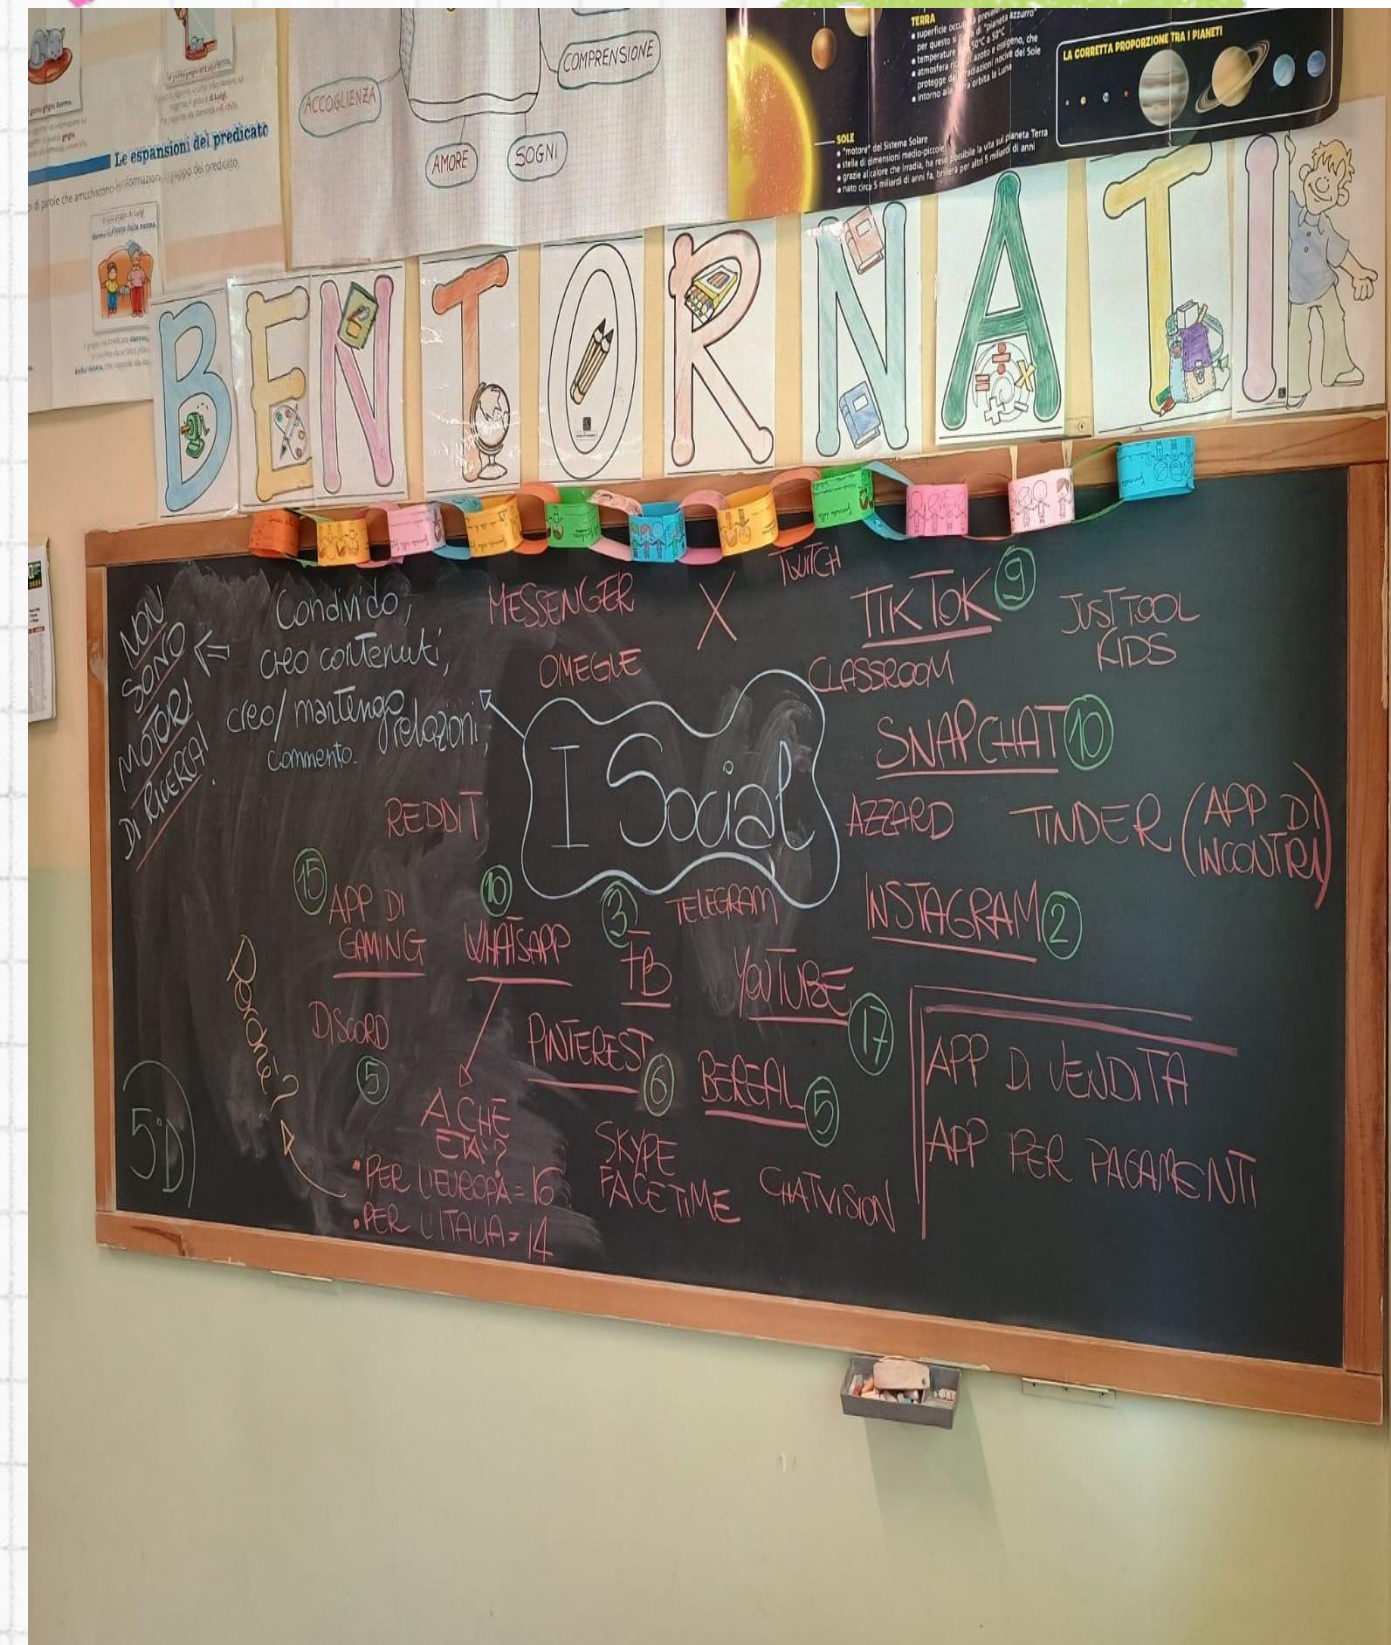 Le espansioni del predicato
ACCOGLIENZA
COMPRENSIONE
AMORE
SOGNI
TERRA
SOLE
• "motore" del Sistema Solare
• stella di dimensioni medio-piccole
• grazie al calore che irradia, ha reso possibile la vita sul pianeta Terra
• nato circa 5 miliardi di anni fa, brillerà per altri 5 miliardi di anni
LA CORRETTA PROPORZIONE TRA I PIANETI
BENTORNATI
NON
SONO
MOTORI
DI RICERCA!
Condivido,
creo contenuti,
creo/mantengo relazioni,
commento.
MESSENGER
X
TWITCH
TIK TOK 9
JUST TOOL
KIDS
OMEGLE
CLASSROOM
SNAPCHAT 10
I Social
REDDIT
AZZARD
TINDER (APP DI
INCONTRI)
15
APP DI
GAMING
10
WHATSAPP
3
FB
TELEGRAM
INSTAGRAM 2
YOUTUBE
17
DISCORD
5
PINTEREST
6
BEREAL 5
Perché?
A CHE
ETÀ?
• PER L'EUROPA = 16
• PER L'ITALIA = 14
SKYPE
FACETIME
CHATVISION
APP DI VENDITA
APP PER PAGAMENTI
5°D